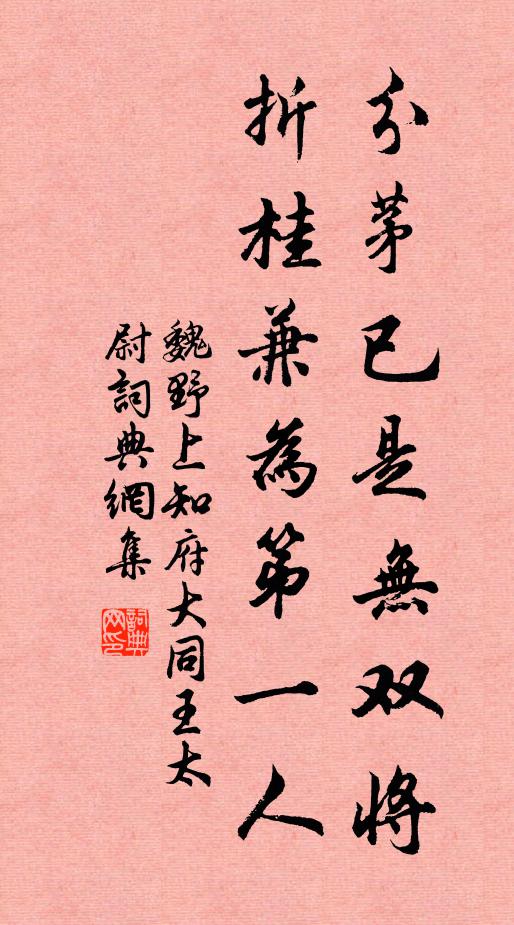 分茅已是無双將
折桂兼為第一人
魏野上知府大同王太
尉詞典網集
詞典网印